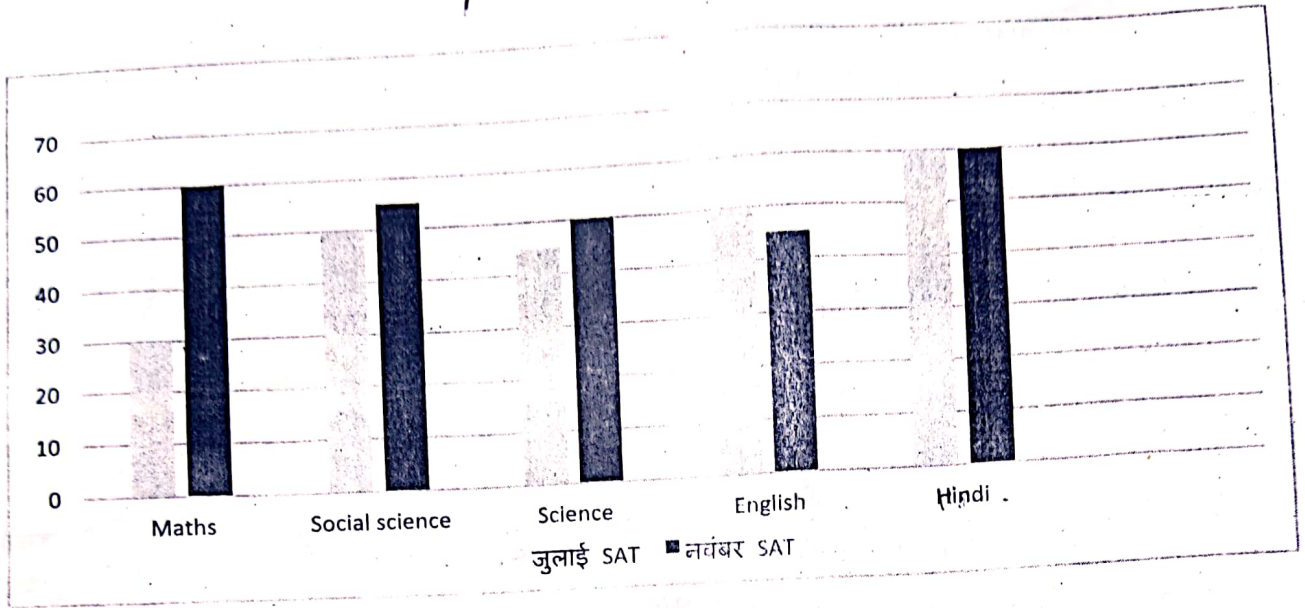 70
60
50
40
30
20
10
0
Maths Social science Science English Hindi
जुलाई SAT नवंबर SAT